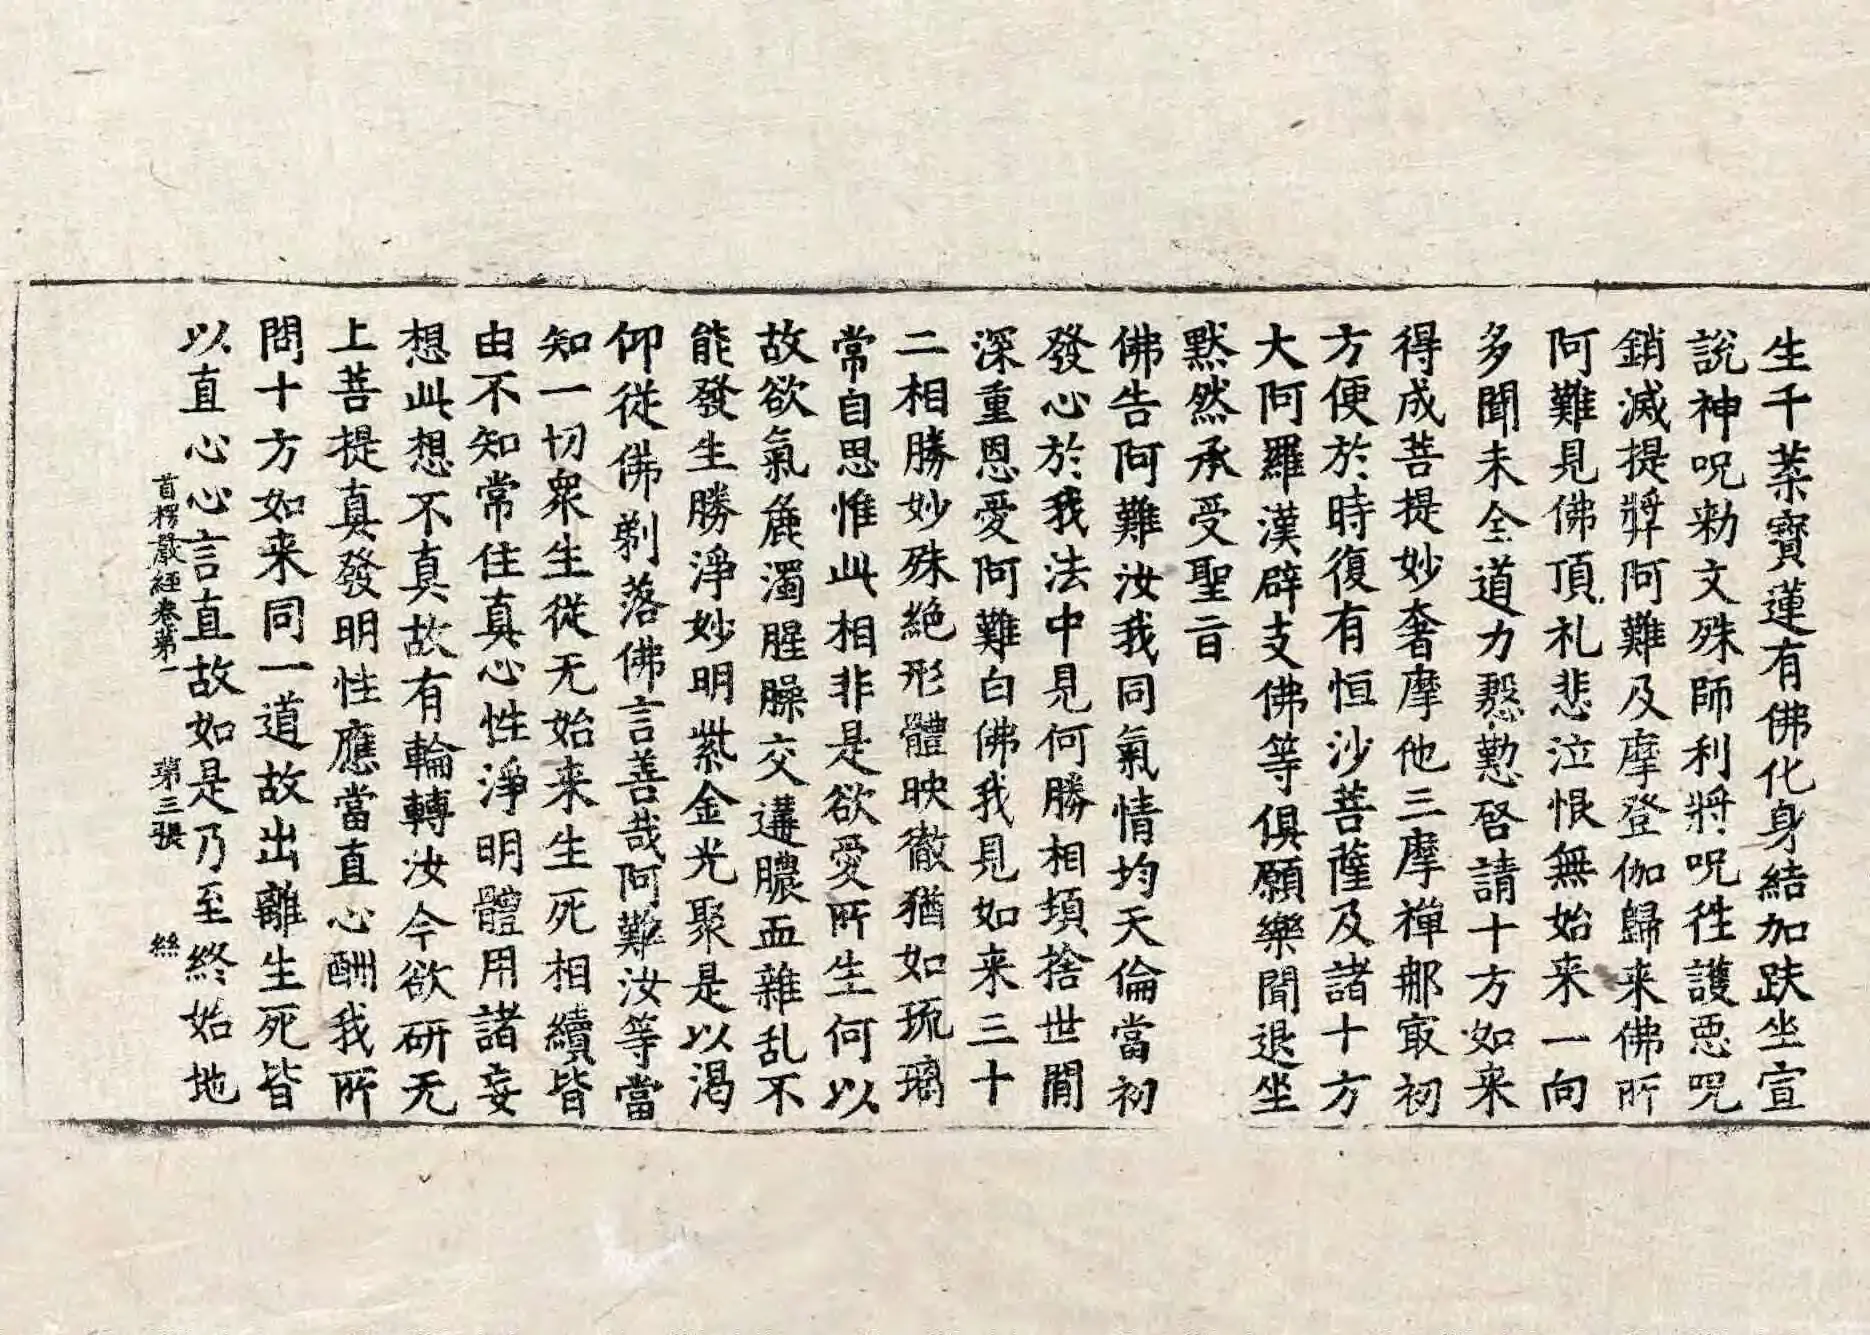 生千葉寶蓮有佛化身結加趺坐宣
說神呪勑文殊師利將呪徃護惡呪
銷滅提奬阿難及摩登伽歸来佛所
阿難見佛頂礼悲泣恨無始来一向
多聞未全道力慇懃啓請十方如来
得成菩提妙奢摩他三摩禪那㝡初
方便於時復有恒沙菩薩及諸十方
大阿羅漢辟支佛等俱願樂聞退坐
黙然承受聖旨
佛告阿難汝我同氣情均天倫當初
發心於我法中見何勝相頓捨世閒
深重恩愛阿難白佛我見如来三十
二相勝妙殊絶形體映徹猶如琉璃
常自思惟此相非是欲愛所生何以
故欲氣麁濁腥臊交遘膿血雜乱不
能發生勝淨妙明紫金光聚是以渴
仰従佛剃落佛言善哉阿難汝等當
知一切衆生従无始来生死相續皆
由不知常住真心性淨明體用諸妄
想此想不真故有輪轉汝今欲研无
上菩提真發明性應當直心酬我所
問十方如来同一道故出離生死皆
以直心心言直故如是乃至終始地
首楞嚴經卷苐一 苐三張 絲